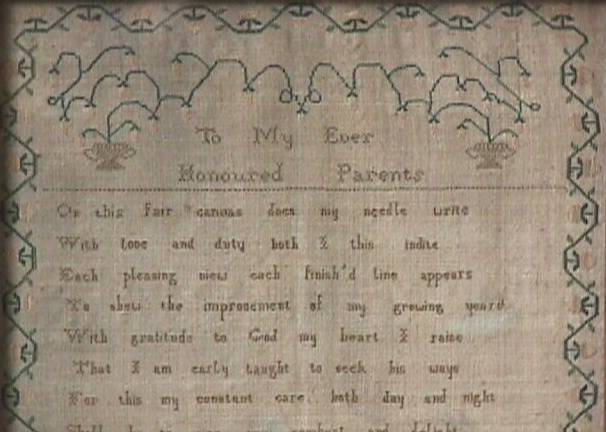 To My Ever
Honoured Parents
On this Fair canvas does my needle write
With love and duty both I this indite
Each pleasing view each finish'd line appears
To shew the improvement of my growing years
With gratitude to God my heart I raise
That I am early taught to seek his ways
For this my constant care both day and night
Shall be to your comfort and delight